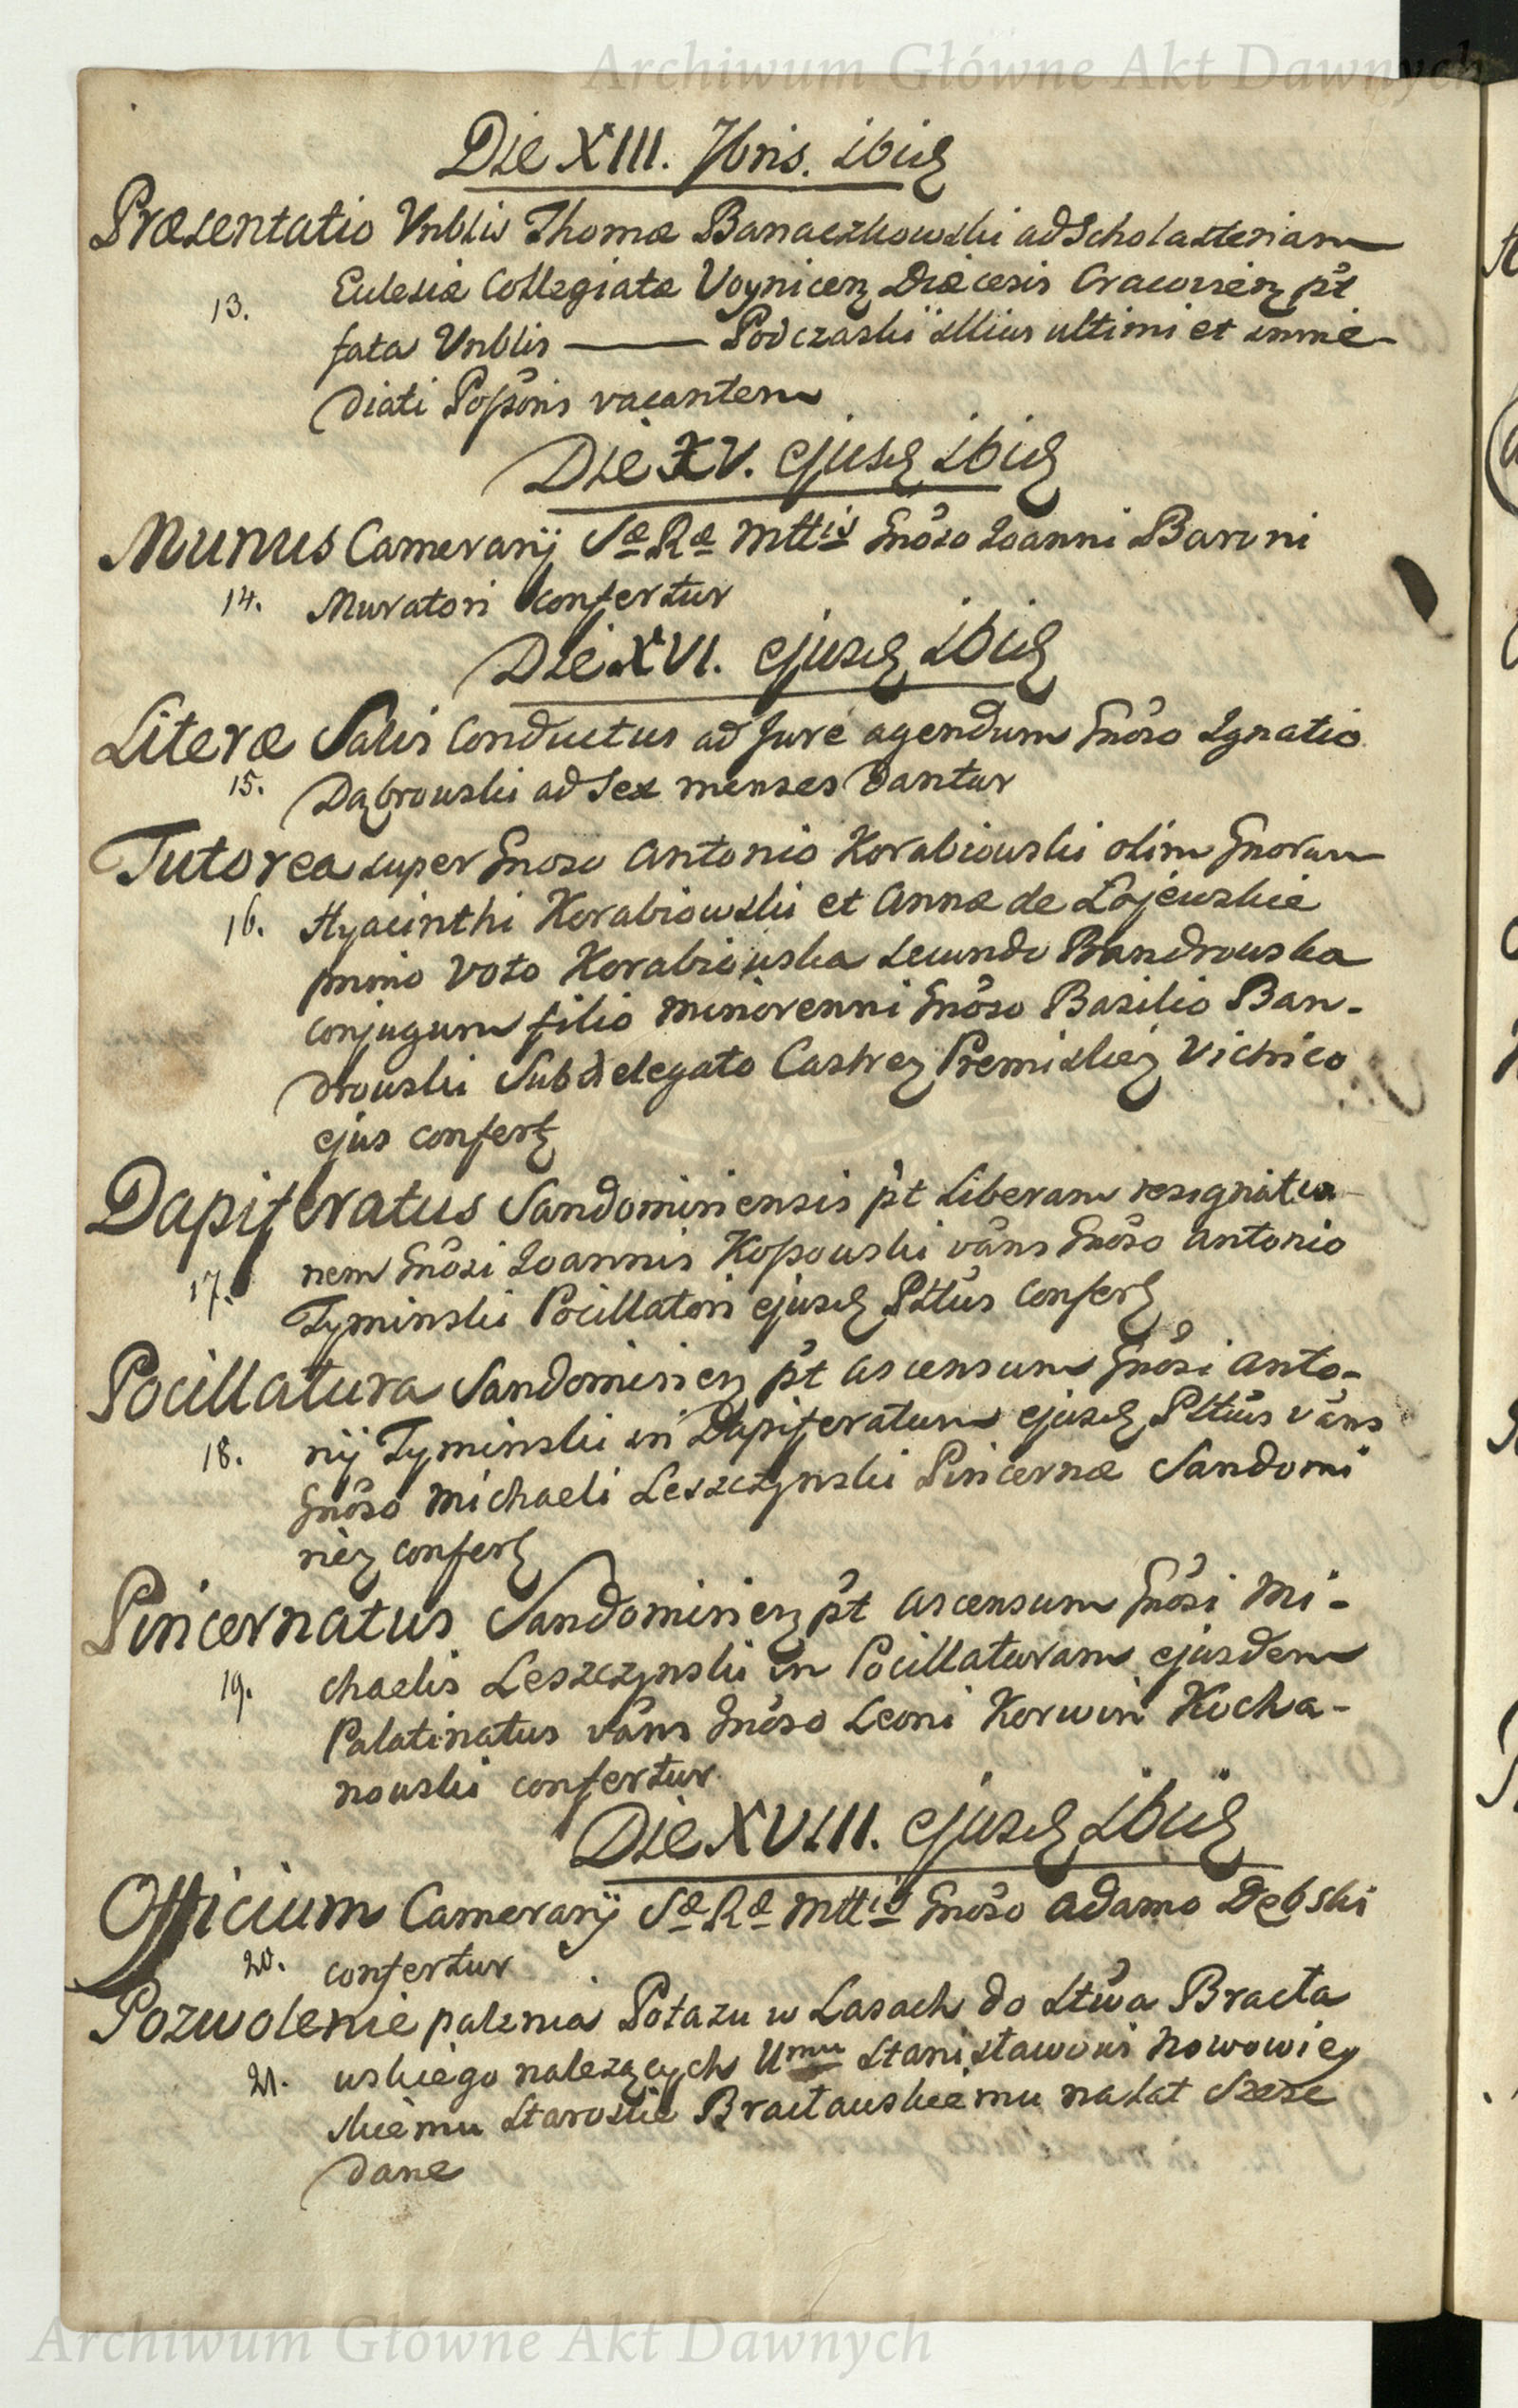 Archiwum Główne Akt Dawnych
Die XIII. 7bris. ibid
Præsentatio Vnblis Thomæ Banaczkowski ad Scholasteriam
13. Eulesiæ Collegiatæ Voynicen Diæcesis Cracovien pt
fata Vnblis — Podczaski illius ultimi et imme-
diati Possoris vacantem
Die XV. ejusd ibid
Munus Camerarij Sæ Ræ Mttis Gnoso Joanni Baroni
14. Muratori confertur
Die XVI. ejusd ibid
Literæ Salvi Conductus ad Jure agendum Gnoso Ignatio
15. Dąbrowski ad Sex menses dantur
Tutorea super Gnoso Antonio Korabiowski olim Gnorum
16. Hyacinthi Korabiowski et Annæ de Łajewskie
primo voto Korabiowska secundo Bandrowska
conjugum filio minorenni Gnoso Basilio Ban-
drowski Subdelegato Castren Premislien Vitrico
ejus confert
Dapiferatus Sandomiriensis pt liberam resignatio
17. nem Gnosi Joannis Kossowski vans Gnoso Antonio
Tyminski Pocillatori ejusd Pltus confert
Pocillatura Sandomirien pt ascensum Gnosi Anto-
18. nij Tyminski in Dapiferatum ejusd Pltus vans
Gnoso Michaeli Leszczynski Pincernæ Sandomi
rien confert
Pincernatus Sandomirien pt ascensum Gnosi Mi-
19. chaelis Leszczynski in Pocillaturam ejusdem
Palatinatus vans Gnoso Leoni Korwin Kocha-
nowski confertur
Die XVIII. ejusd ibid
Officium Camerarij Sæ Ræ Mttis Gnoso Adamo Dębski
20. confertur
Pozwolenie palenia Potazu w Lasach do Stwa Bracła
21. wskiego nalezących Umu Stanisławowi Nowowiey
skiemu Staroscie Bracławskiemu na lat Szesc
dane
Archiwum Główne Akt Dawnych